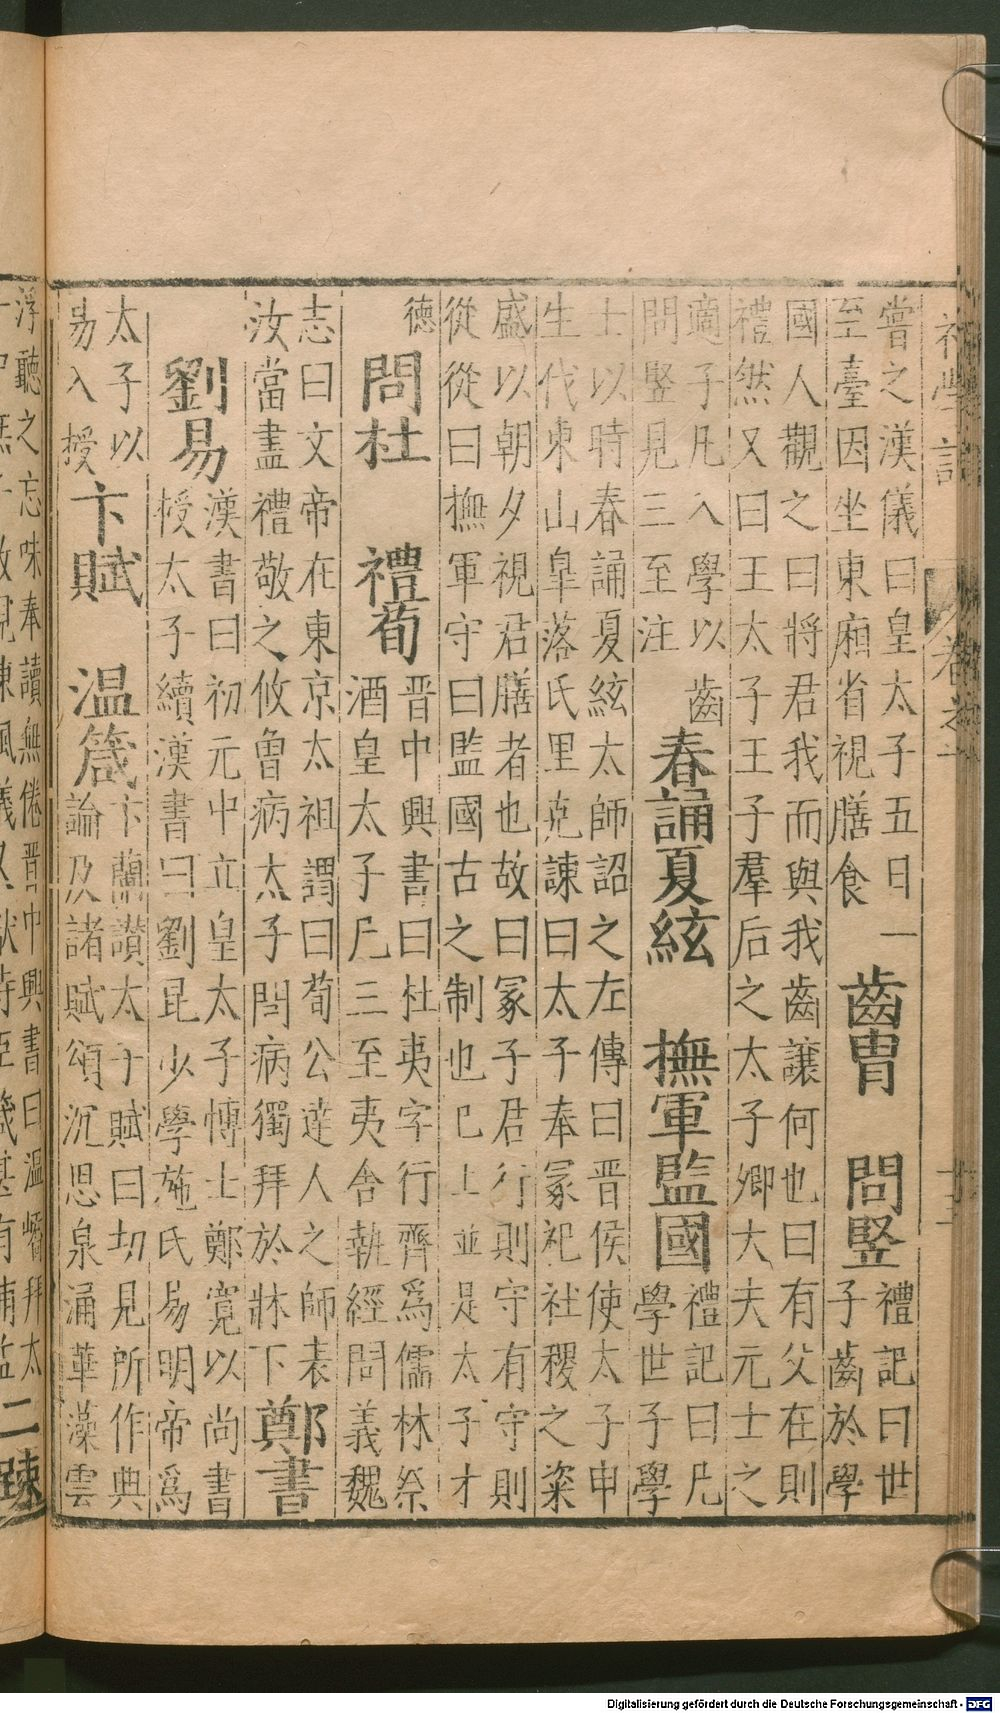 初學記 卷之十
嘗之漢儀曰皇太子五日一
至臺因坐東廂省視膳食
齒胄 問竪
禮記曰世
子齒於學
國人觀之曰將君我而與我齒讓何也曰有父在則
禮然又曰王太子王子羣后之太子卿大夫元士之
適子凡入學以齒
問竪見三至注
春誦夏絃 撫軍監國
禮記曰凡
學世子學
士以時春誦夏絃太師詔之左傳曰晋侯使太子申
生代東山臯落氏里克諫曰太子奉冢祀社稷之粢
盛以朝夕視君膳者也故曰冢子君行則守有守則
從從曰撫軍守曰監國古之制也巳上並是太子才
德
問杜 禮荀
晋中興書曰杜夷字行齊爲儒林祭
酒皇太子凡三至夷舍執經問義魏
志曰文帝在東京太祖謂曰荀公達人之師表
汝當盡禮敬之攸曾病太子問病獨拜於牀下
鄭書
劉易
漢書曰初元中立皇太子愽士鄭寬以尚書
授太子續漢書曰劉昆少學施氏易明帝爲
太子以
易入授
卞賦 溫箴
卞蘭讃太子賦曰切見所作典
論及諸賦頌沉思泉涌華藻雲
浮聽之忘味奉讀無倦晋中興書曰溫嶠拜太
二踈
Digitalisierung gefördert durch die Deutsche Forschungsgemeinschaft - DFG